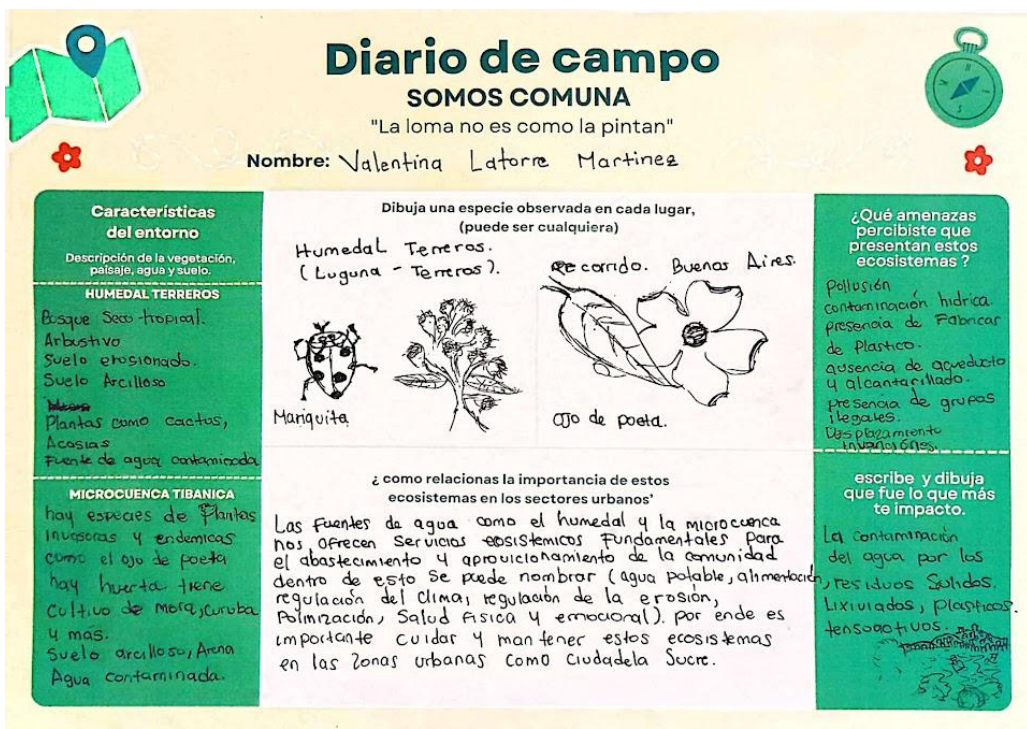 Diario de campo
SOMOS COMUNA
"La loma no es como la pintan"
Nombre: Valentina Latorre Martinez
Características
del entorno
Descripción de la vegetación,
paisaje, agua y suelo.
HUMEDAL TERREROS
Bosque Seco tropical.
Arbustivo
Suelo erosionado.
Suelo Arcilloso
Plantas como cactus,
Acasias
Fuente de agua contaminada
MICROCUENCA TIBANICA
hay especies de Plantas
Invasoras y endemicas
como el ojo de poeta
hay huerta tiene
Cultivo de mora, curuba
y más.
Suelo arcilloso, Arena
Agua contaminada.
Dibuja una especie observada en cada lugar,
(puede ser cualquiera)
Humedal Terreros.
(Laguna - Terreros).
Mariquita
Recorrido. Buenos Aires.
Ojo de poeta.
¿ como relacionas la importancia de estos
ecosistemas en los sectores urbanos'
Las Fuentes de agua como el humedal y la microcuenca
nos ofrecen Servicios ecosistemicos Fundamentales para
el abastecimiento y aprovicionamiento de la comunidad
dentro de esto Se puede nombrar (agua potable, alimentación,
regulación del clima, regulación de la erosión,
Polinización, Salud Fisica y emocional). por ende es
importante cuidar y mantener estos ecosistemas
en las zonas urbanas como Ciudadela Sucre.
¿Qué amenazas
percibiste que
presentan estos
ecosistemas ?
pollusión
contaminación hidrica.
presencia de Fabricas
de Plastico.
ausencia de aqueducto
y alcantarillado.
presencia de grupos
ilegales.
Desplazamiento
Invanciónes.
escribe y dibuja
que fue lo que más
te impacto.
La contaminación
del agua por los
residuos Solidos.
Lixiviados, plasticos.
tensoactivos.